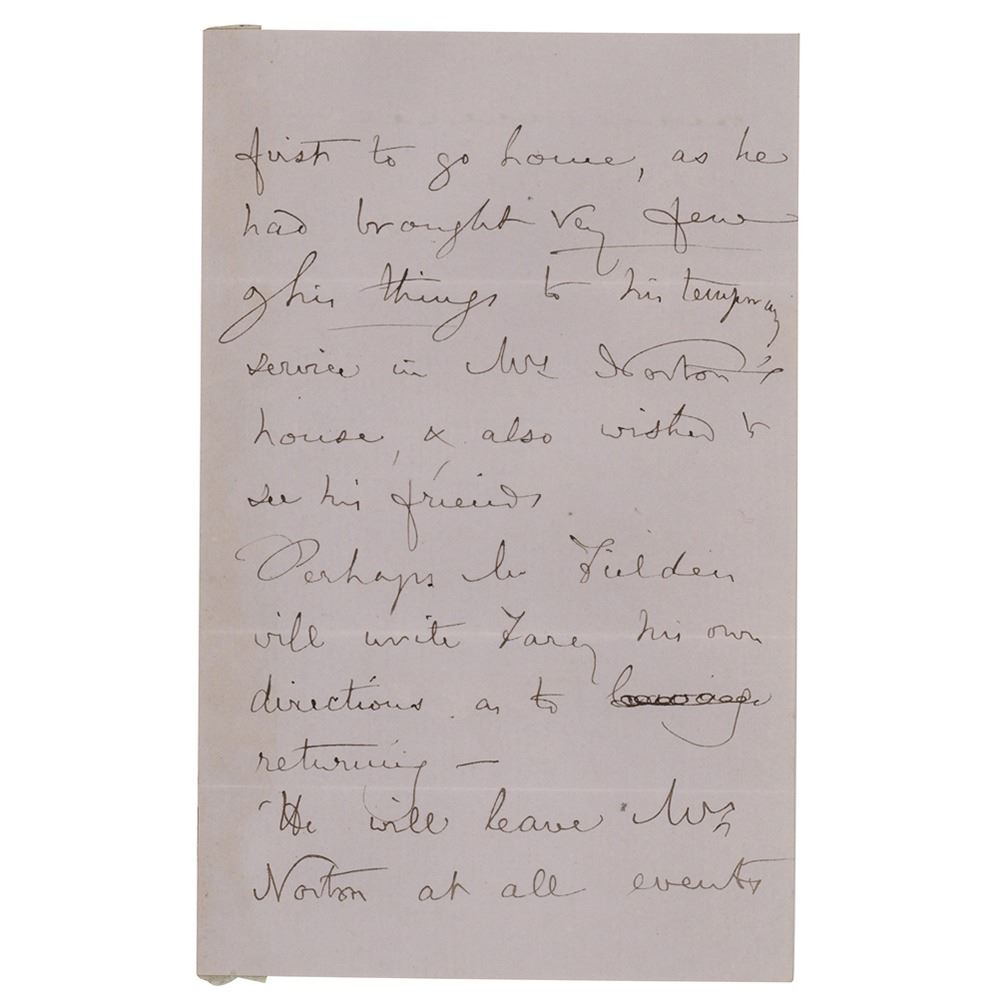 first to go home, as he
had brought very few
of his things to his temporary
service in Mrs Norton's
house, & also wished to
see his friends
Perhaps Mr Fielden
will write Farey his own
directions as to
returning —
He will leave Mrs
Norton at all events